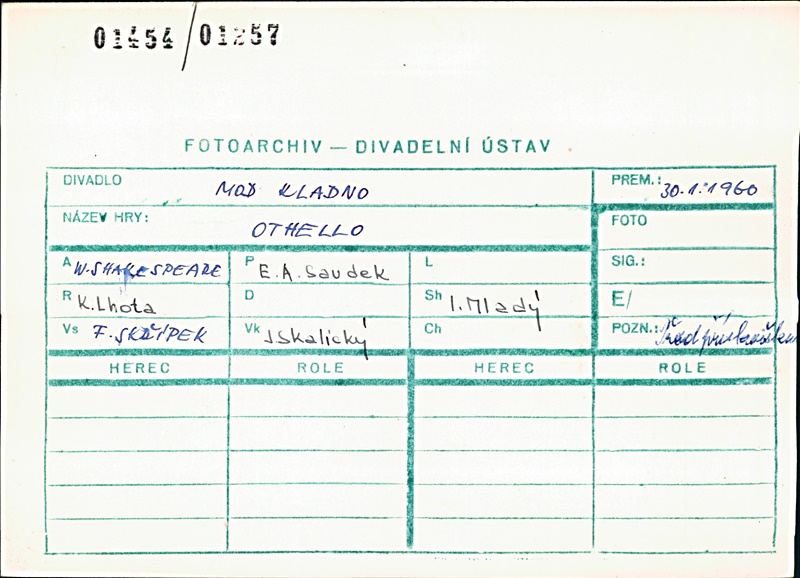 01454/01257
FOTOARCHIV — DIVADELNÍ ÚSTAV
DIVADLO MOD KLADNO PREM.: 30.1.1960
NÁZEV HRY: OTHELLO FOTO
A W. SHAKESPEARE P E.A. Saudek L SIG.:
R K. Lhota D Sh I. Mladý E/
Vs F. SKŘÍPEK Vk J. Skalický Ch POZN.:
HEREC ROLE HEREC ROLE